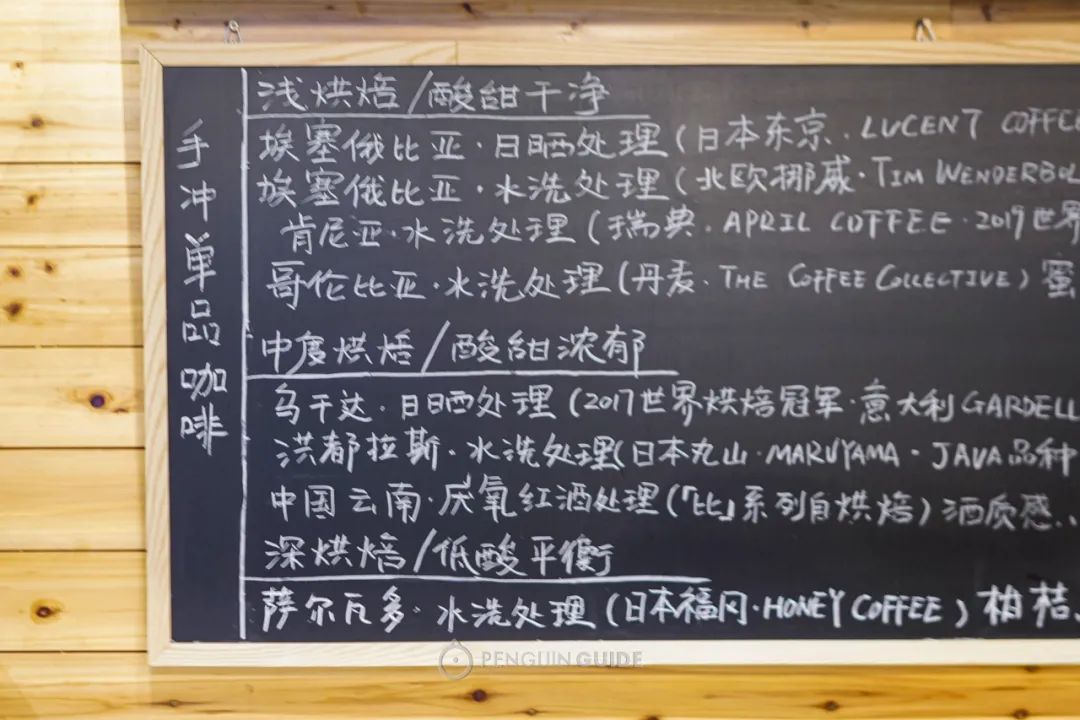 手冲单品咖啡
浅烘焙/酸甜干净
埃塞俄比亚·日晒处理(日本东京·LUCENT COFFEE
埃塞俄比亚·水洗处理(北欧挪威·TIM WENDERBOL
肯尼亚·水洗处理(瑞典·APRIL COFFEE·2019世界
哥伦比亚·水洗处理(丹麦·THE COFFEE COLLECTIVE)蜜
中度烘焙/酸甜浓郁
乌干达·日晒处理(2017世界烘焙冠军·意大利GARDELL
洪都拉斯·水洗处理(日本丸山·MARUYAMA·JAVA品种
中国云南·厌氧红酒处理(「比」系列自烘焙)酒质感..
深烘焙/低酸平衡
萨尔瓦多·水洗处理(日本福冈·HONEY COFFEE)柏桔
PENGUIN GUIDE